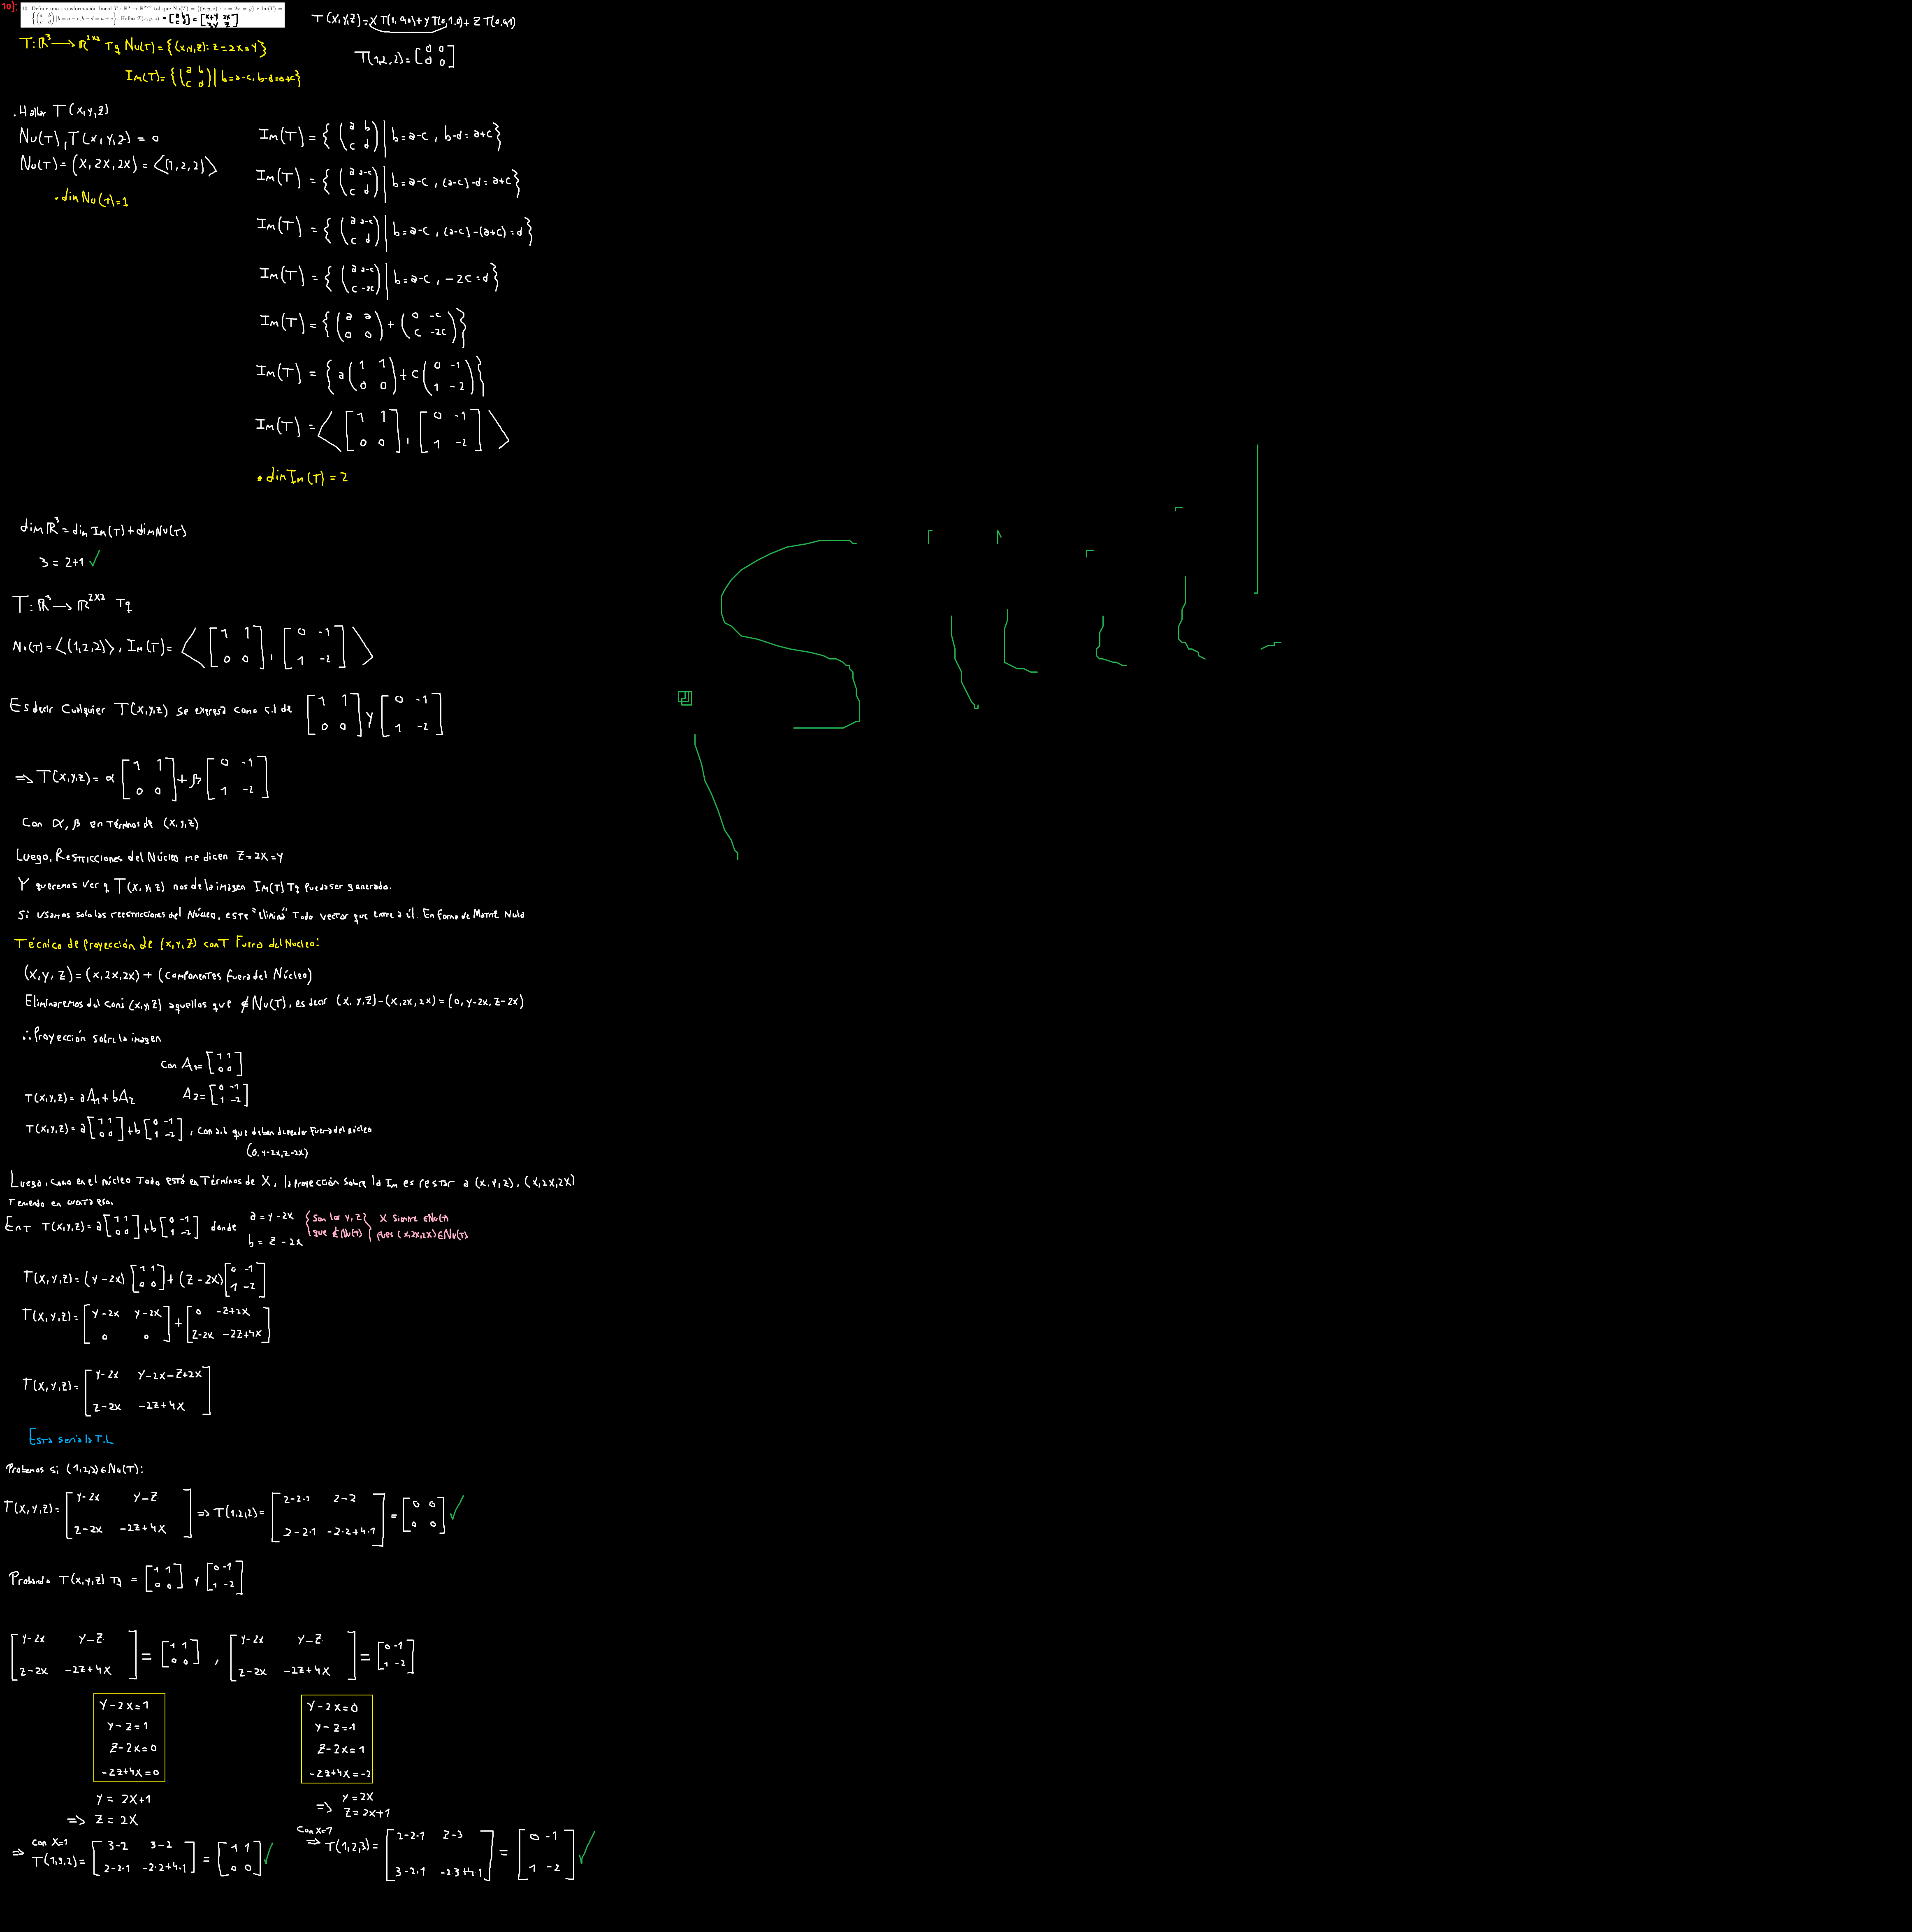 10):
10. Definir una transformación lineal T : ℝ³ → ℝ²ˣ² tal que Nu(T) = {(x, y, z) : z = 2x = y} e Im(T) =
{(a b; c d) | b = a − c, b − d = a + c}. Hallar T(x, y, z). = [a b; c d] = [x+y 2x; z-y z]
T(x,y,z)=x T(1,0,0)+y T(0,1,0)+z T(0,0,1)
T: ℝ³ → ℝ²ˣ² Tq Nu(T)={(x,y,z): z=2x=y}
T(1,2,2)=[0 0; 0 0]
Im(T)={(a b; c d) | b=a-c, b-d=a+c}
. Hallar T(x,y,z)
Nu(T), T(x,y,z) = 0
Nu(T)=(x,2x,2x)=<(1,2,2)>
• dim Nu(T)=1
Im(T) = {(a b; c d) | b=a-c, b-d=a+c}
Im(T) = {(a a-c; c d) | b=a-c, (a-c)-d=a+c}
Im(T) = {(a a-c; c d) | b=a-c, (a-c)-(a+c)=d}
Im(T) = {(a a-c; c -2c) | b=a-c, -2c=d}
Im(T) = {(a a; 0 0)+(0 -c; c -2c)}
Im(T) = {a(1 1; 0 0)+c(0 -1; 1 -2)}
Im(T) = <[1 1; 0 0], [0 -1; 1 -2]>
• dim Im(T) = 2
dim ℝ³ = dim Im(T)+dim Nu(T)
3 = 2+1 ✓
T: ℝ³ → ℝ²ˣ² Tq
Nu(T)=<(1,2,2)>, Im(T)= <[1 1; 0 0], [0 -1; 1 -2]>
Es decir Cualquier T(x,y,z) se expresa como c.l de [1 1; 0 0] y [0 -1; 1 -2]
=> T(x,y,z)= α[1 1; 0 0]+β[0 -1; 1 -2]
Con α, β en términos de (x,y,z)
Luego, Restricciones del Núcleo me dicen z=2x=y
Y queremos ver q T(x,y,z) nos de la imagen Im(T) Tq pueda ser generado.
Si usamos solo las reestricciones del Núcleo, este "elimina" Todo vector que entre a él. En forma de Matriz Nula
Técnico de proyección de (x,y,z) con T Fuera del Nucleo:
(x,y,z)=(x,2x,2x)+(componentes fuera del Núcleo)
Eliminaremos del conj (x,y,z) aquellos que ∉Nu(T), es decir (x,y,z)-(x,2x,2x)=(0,y-2x,z-2x)
∴ Proyección sobre la imagen
Con A₁=[1 1; 0 0]
T(x,y,z)=aA₁+bA₂ A₂=[0 -1; 1 -2]
T(x,y,z)=a[1 1; 0 0]+b[0 -1; 1 -2], con a,b que deben depender fuera del núcleo
(0,y-2x,z-2x)
Luego, como en el núcleo Todo está en Términos de x, la proyección sobre la Im es restar a (x,y,z), (x,2x,2x)
Teniendo en cuenta eso,
Ent T(x,y,z)=a[1 1; 0 0]+b[0 -1; 1 -2] donde a=y-2x b=z-2x {Son los y,z que ∉Nu(T)} x siempre ∈Nu(T) pues (x,2x,2x)∈Nu(T)
T(x,y,z)=(y-2x)[1 1; 0 0]+(z-2x)[0 -1; 1 -2]
T(x,y,z)=[y-2x y-2x; 0 0]+[0 -z+2x; z-2x -2z+4x]
T(x,y,z)=[y-2x y-2x-z+2x; z-2x -2z+4x]
Esta seria la T.L
Probemos si (1,2,2)∈Nu(T):
T(x,y,z)=[y-2x y-z; z-2x -2z+4x] => T(1,2,2)=[2-2·1 2-2; 2-2·1 -2·2+4·1]=[0 0; 0 0] ✓
Probando T(x,y,z) Tq = [1 1; 0 0] y [0 -1; 1 -2]
[y-2x y-z; z-2x -2z+4x]=[1 1; 0 0], [y-2x y-z; z-2x -2z+4x]=[0 -1; 1 -2]
y-2x=1
y-z=1
z-2x=0
-2z+4x=0
y=2x+1
=> z=2x
y-2x=0
y-z=-1
z-2x=1
-2z+4x=-2
=> y=2x
z=2x+1
=> con x=1 T(1,3,2)=[3-2 3-2; 2-2·1 -2·2+4·1]=[1 1; 0 0] ✓
con x=1 => T(1,2,3)=[2-2·1 2-3; 3-2·1 -2·3+4·1]=[0 -1; 1 -2] ✓